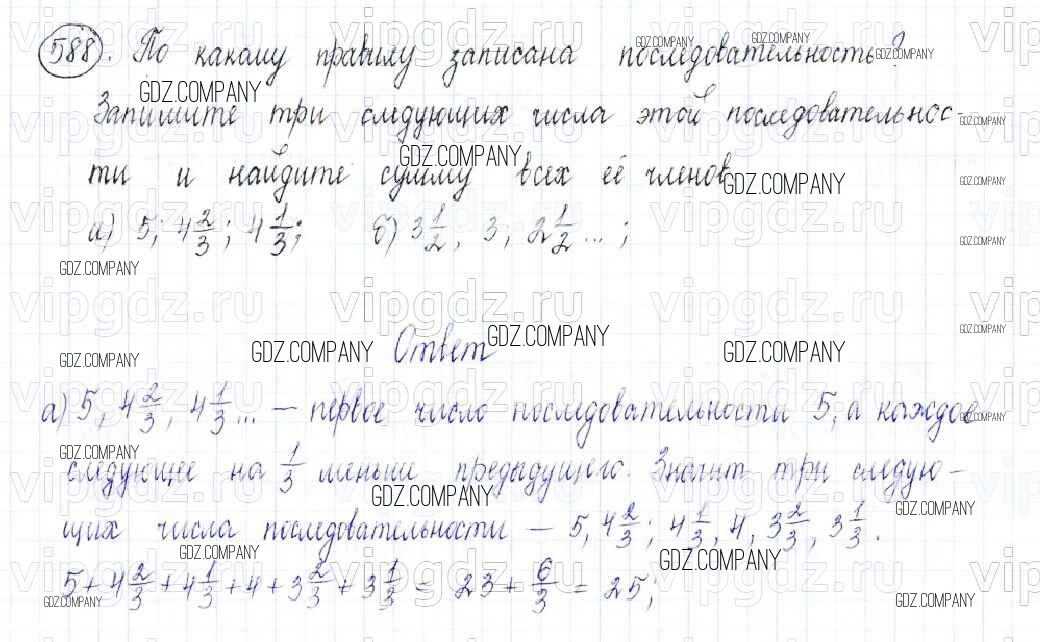 588. По какому правилу записана последовательность?
Запишите три следующих числа этой последовательнос-
ти и найдите сумму всех её членов
а) 5; 4 2/3; 4 1/3; б) 3 1/2, 3, 2 1/2 ... ;
Ответ
а) 5, 4 2/3, 4 1/3 ... – первое число последовательности 5, а каждое
следующее на 1/3 меньше предыдущего. Значит три следую-
щих числа последовательности – 5, 4 2/3; 4 1/3, 4, 3 2/3, 3 1/3.
5 + 4 2/3 + 4 1/3 + 4 + 3 2/3 + 3 1/3 = 23 + 6/3 = 25;
GDZ.COMPANY
vipgdz.ru